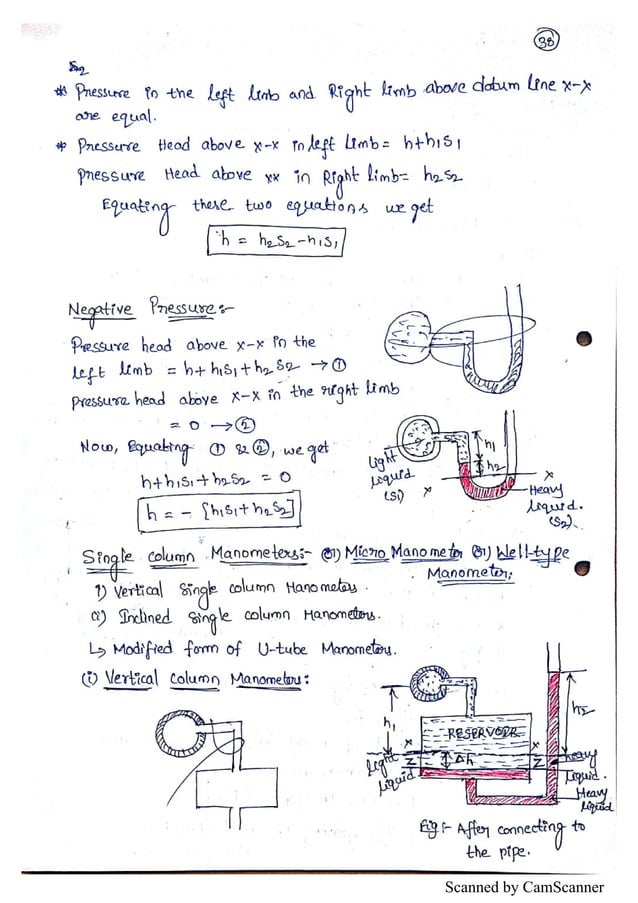 38
S2
* Pressure in the left limb and Right limb above datum line x-x
are equal.
* Pressure Head above x-x in left limb = h+h1s1
pressure Head above xx in Right limb = h2s2
Equating these two equations we get
h = h2s2-h1s1
Negative Pressure:-
Pressure head above x-x in the
left limb = h+h1s1+h2s2 → ①
pressure head above x-x in the right limb
= 0 → ②
Now, Equating ① & ②, we get
h+h1s1+h2s2 = 0
h = - [h1s1+h2s2]
h1
h2
Light
liquid
(S1)
x
x
Heavy
liquid.
(S2).
Single column Manometers:- (or) Micro Manometer (or) Well-type
Manometer;
1) Vertical single column Manometers.
2) Inclined single column Manometers.
↳ Modified form of U-tube Manometers.
(i) Vertical Column Manometers:
h1
RESERVOIR
h2
x
x
Z
Δh
Z
light
liquid
heavy
liquid.
Heavy
liquid
Fig:- After connecting to
the pipe.
Scanned by CamScanner